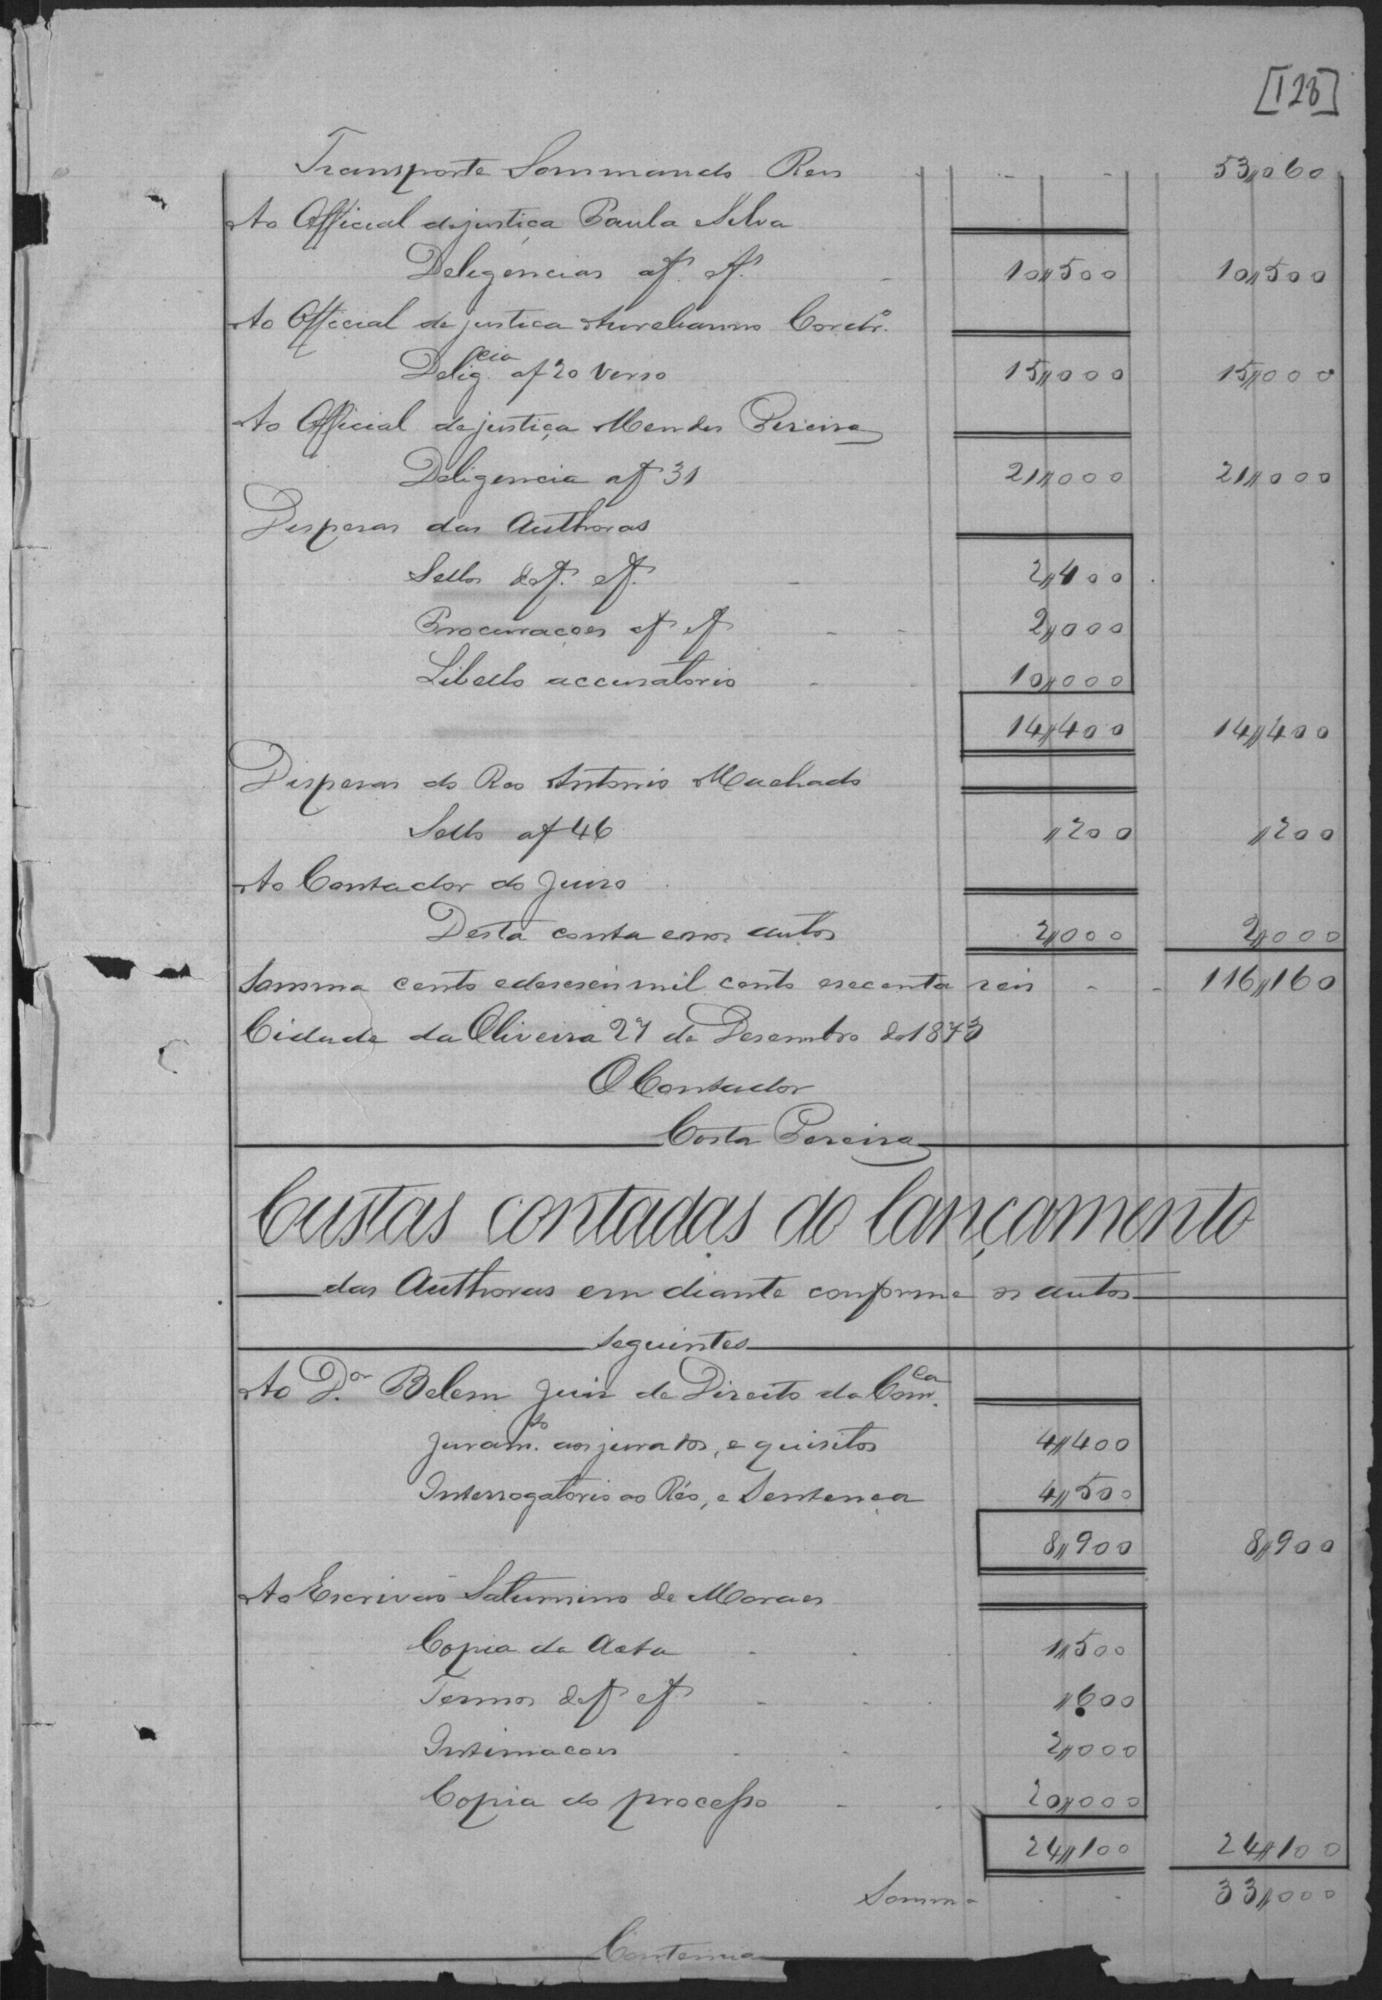 [128]
Transporte Sommando Reis - - 53,,060
Ao Official dejustiça Paula Silva
Deligencias af. ef. - 10,,500 10,,500
Ao Official de justica Aurelianno Cordr.º
Delig.cia af 20 verso 15,,000 15,,000
Ao Official dejustiça Mendes Pereira
Deligencia af 31 21,,000 21,,000
Despesas das Authoras
Sello def. ef. - 2,,400
Procuraçoes ef ef - - 2,,000
Libello accusatorio - - 10,,000
14,,400 14,,400
Despesas do Reo Antonio Machado
Sello af 46 ,,200 ,,200
Ao Contador do Juiso
Desta conta enos autos 2,,000 2,,000
Somma cento edeseseis mil cento esecenta reis - - 116,,160
Cidade da Oliveira 27 de Desembro de 1873
O Contador
Costa Pereira
Custas contadas do lançamento
das Authoras em diante conforme os autos
seguintes
Ao D.or Belem Juis de Direito da Com.ca
Juram.to aos jurados, e quisitos 4,,400
Interrogatorio ao Réo, e Sentença 4,,500
8,,900 8,,900
Ao Escrivão Saturnino de Moraes
Copia da Acta - - 1,,500
Termos def ef - - - ,,600
Intimacoes - - 2,,000
Copia do processo - - 20,,000
24,,100 24,,100
Somma - - 33,,000
Continua